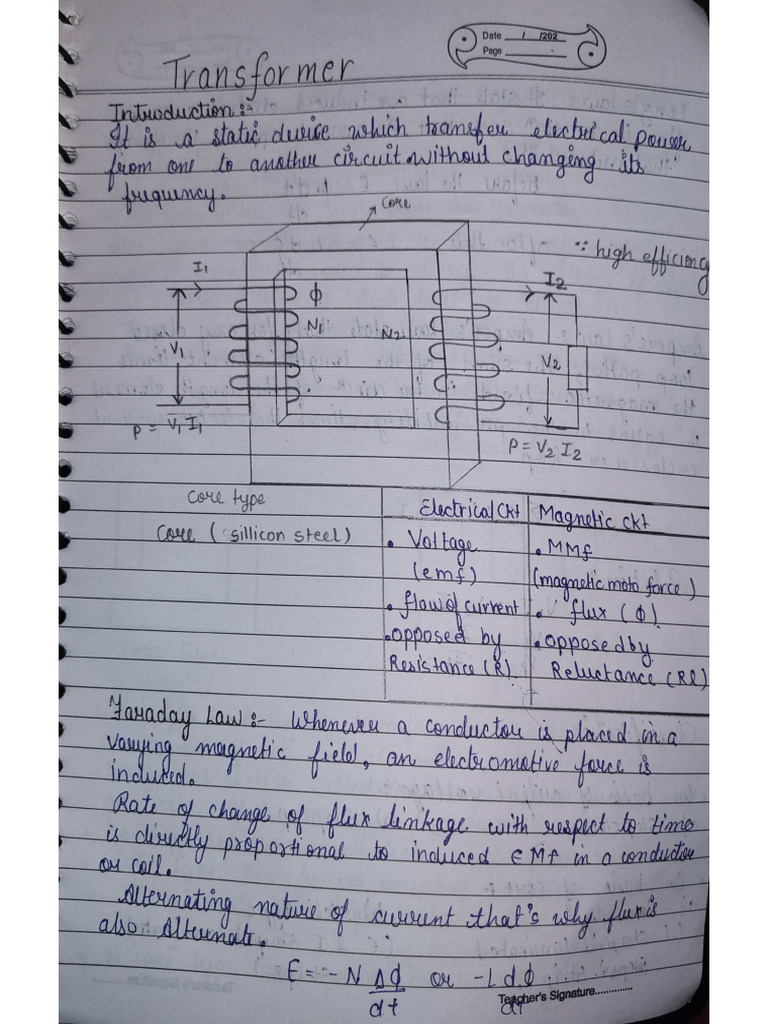 Date / /202
Page
Transformer
Introduction :-
It is a static device which transfer electrical power
from one to another circuit without changing its
frequency.
core
∵ high efficiency
I1
I2
ϕ
N1
N2
V1
V2
P = V1 I1
P = V2 I2
core type
core ( sillicon steel)
Electrical Ckt
Magnetic ckt
• Voltage
(emf)
• flow of current
• opposed by
Resistance (R)
• MMf
(magnetic moto force)
• flux (ϕ)
• opposed by
Reluctance (Rl)
Faraday Law :- Whenever a conductor is placed in a
varying magnetic field, an electromotive force is
induced.
Rate of change of flux linkage with respect to time
is directly proportional to induced EMf in a conductor
or coil.
Alternating nature of current that's why flux is
also Alternate.
E = - N Δϕ/dt or -L dϕ/dt
Teacher's Signature..............